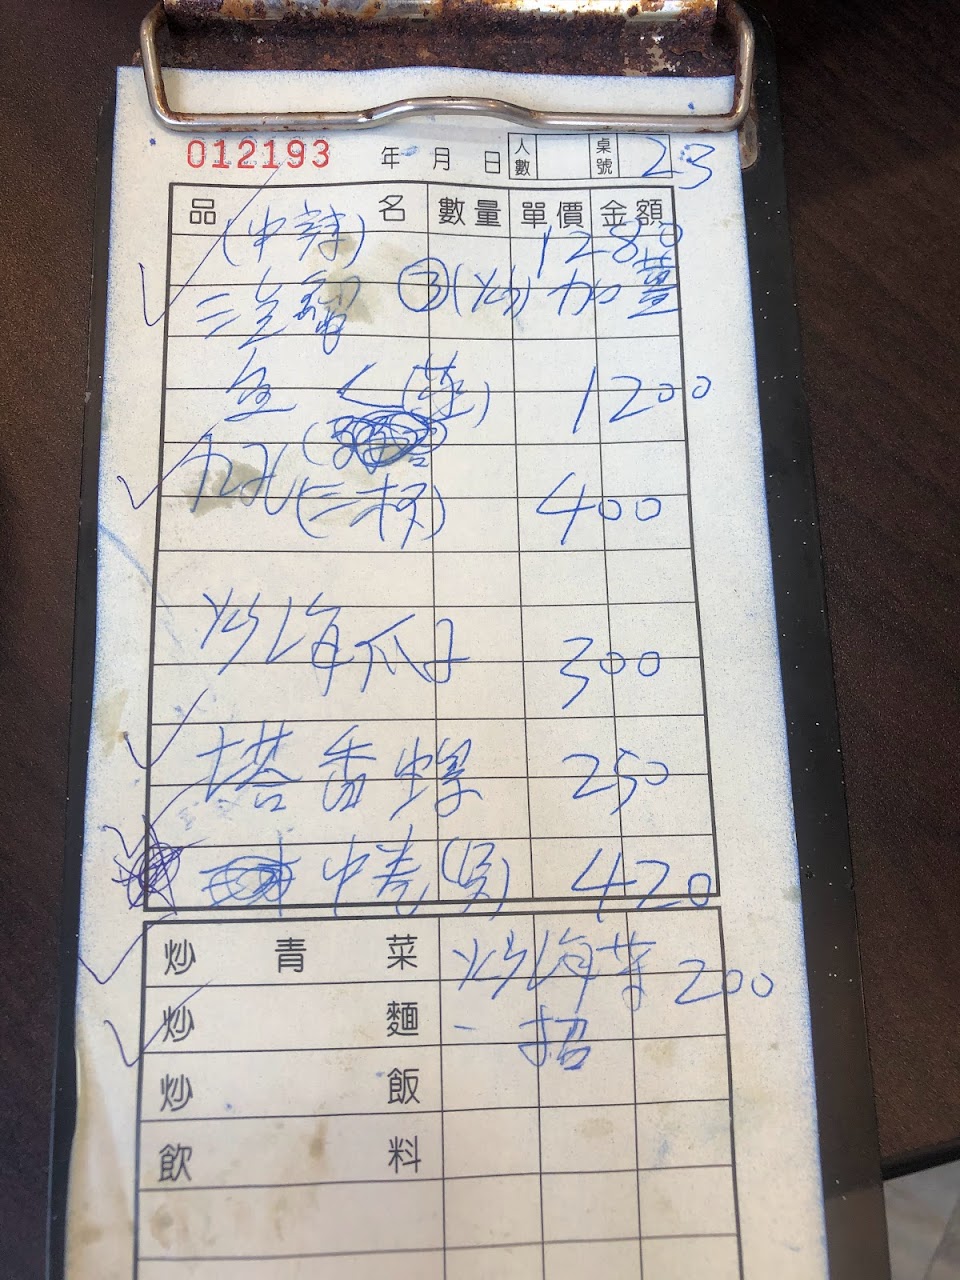 012193 年 月 日 人數 桌號 23
品 名 數量 單價 金額
(中辣) 1280
三 ③(炒) 加薑
魚 1200
九孔(三杯) 400
炒海瓜子 300
塔香螺 250
中卷 420
炒 青 菜 炒海菜 200
炒 麵
炒 飯
飲 料